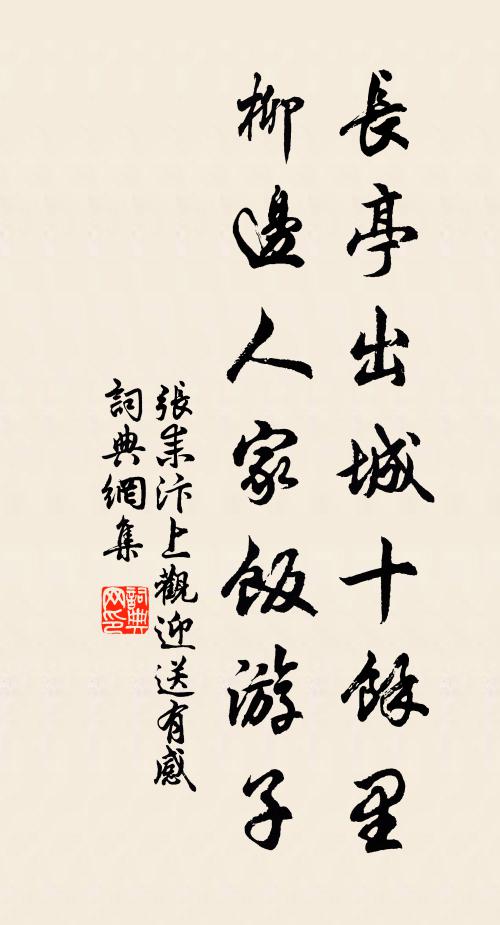 長亭出城十餘里
柳邊人家飯游子
張耒汴上觀迎送有感
詞典網集
詞典网印